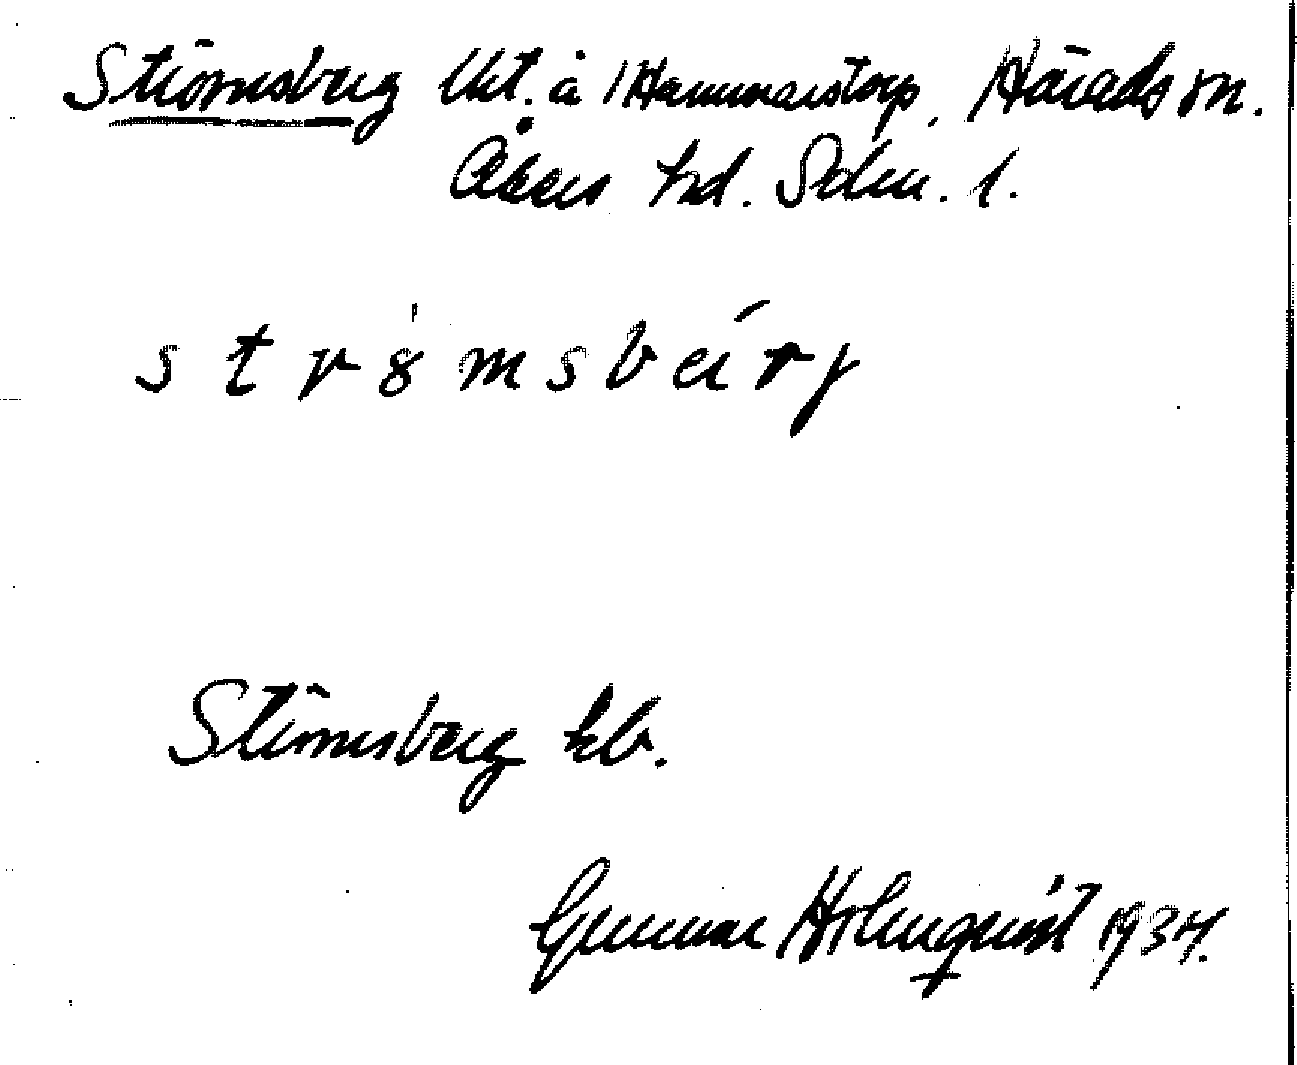 Strömsberg lht. å Hammarstorp, Härads sn.
Åkers hd. Sdm. l.
strömsbärj
Strömsberg kb.
Gunnar Holmquist 1934.